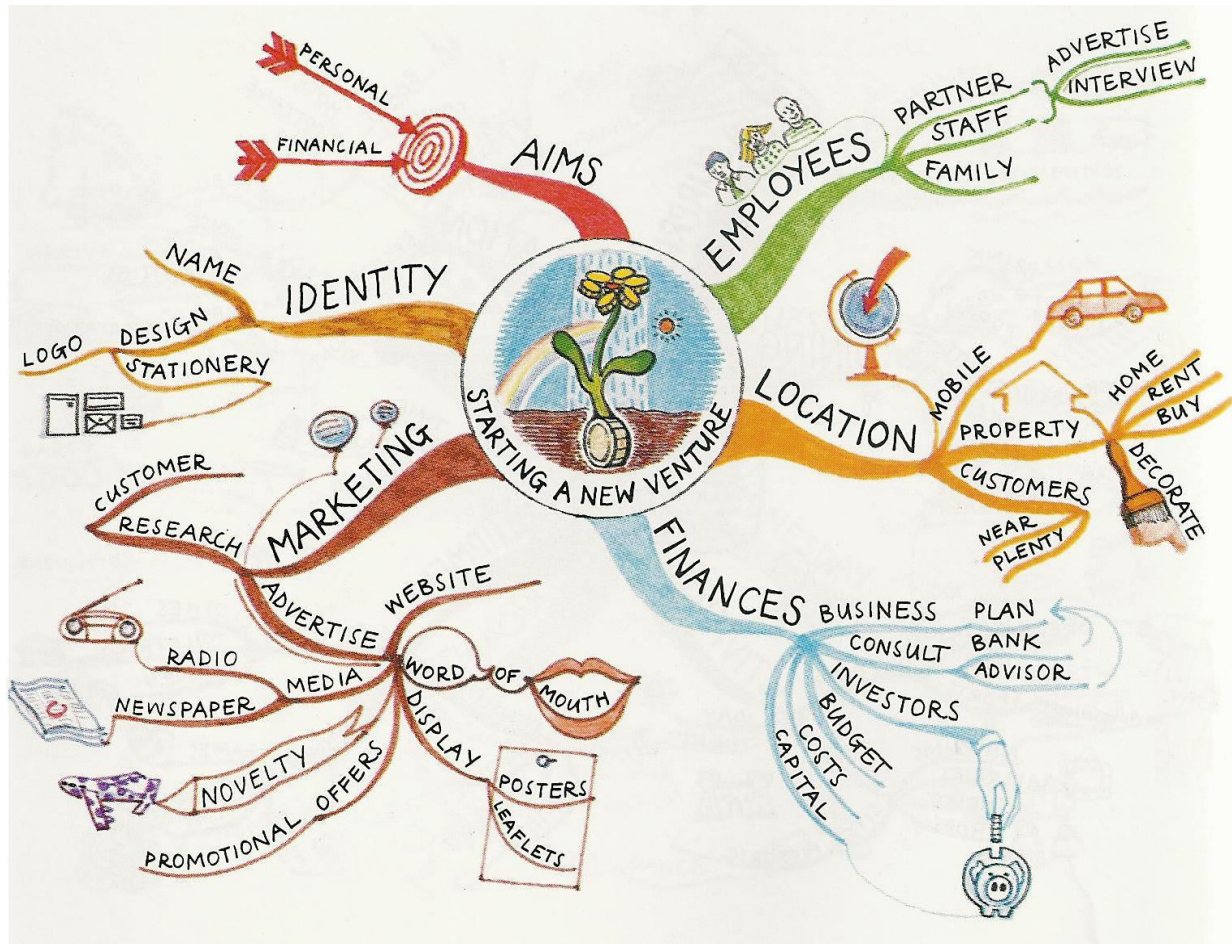 STARTING A NEW VENTURE
AIMS
PERSONAL
FINANCIAL
EMPLOYEES
PARTNER
STAFF
ADVERTISE
INTERVIEW
FAMILY
LOCATION
MOBILE
PROPERTY
HOME
RENT
BUY
DECORATE
CUSTOMERS
NEAR
PLENTY
FINANCES
BUSINESS PLAN
CONSULT
BANK
ADVISOR
INVESTORS
BUDGET
COSTS
CAPITAL
MARKETING
RESEARCH
CUSTOMER
ADVERTISE
WEBSITE
WORD OF MOUTH
DISPLAY
POSTERS
LEAFLETS
MEDIA
RADIO
NEWSPAPER
NOVELTY
OFFERS
PROMOTIONAL
IDENTITY
NAME
DESIGN
LOGO
STATIONERY